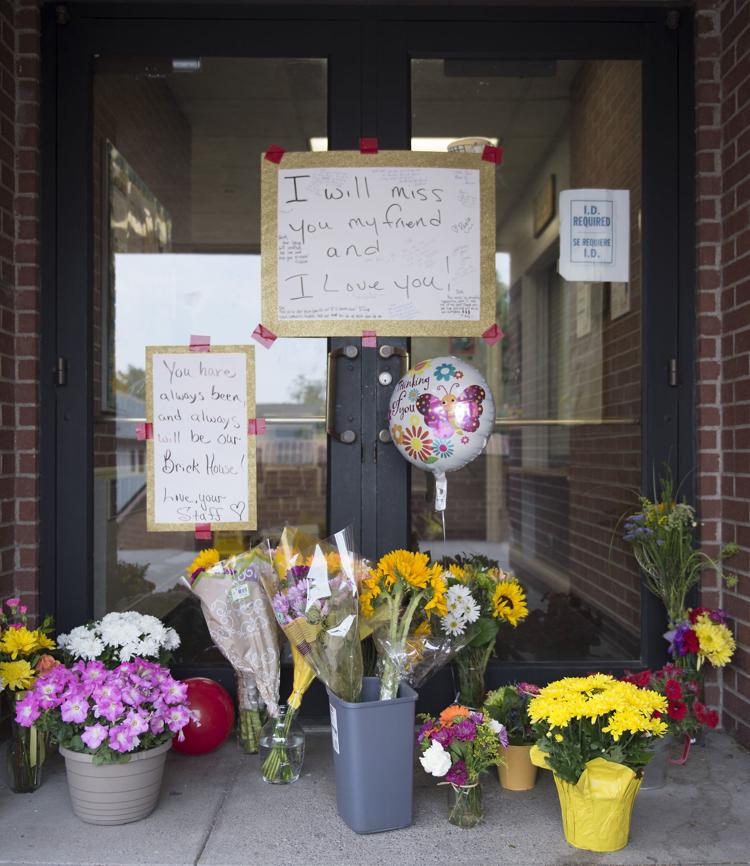 I will miss
you my friend
and
I Love you!
I.D.
REQUIRED
SE REQUIERE
I.D.
You have
always been,
and always
will be our
Brick House!
Love, your
Staff
Thinking
of you